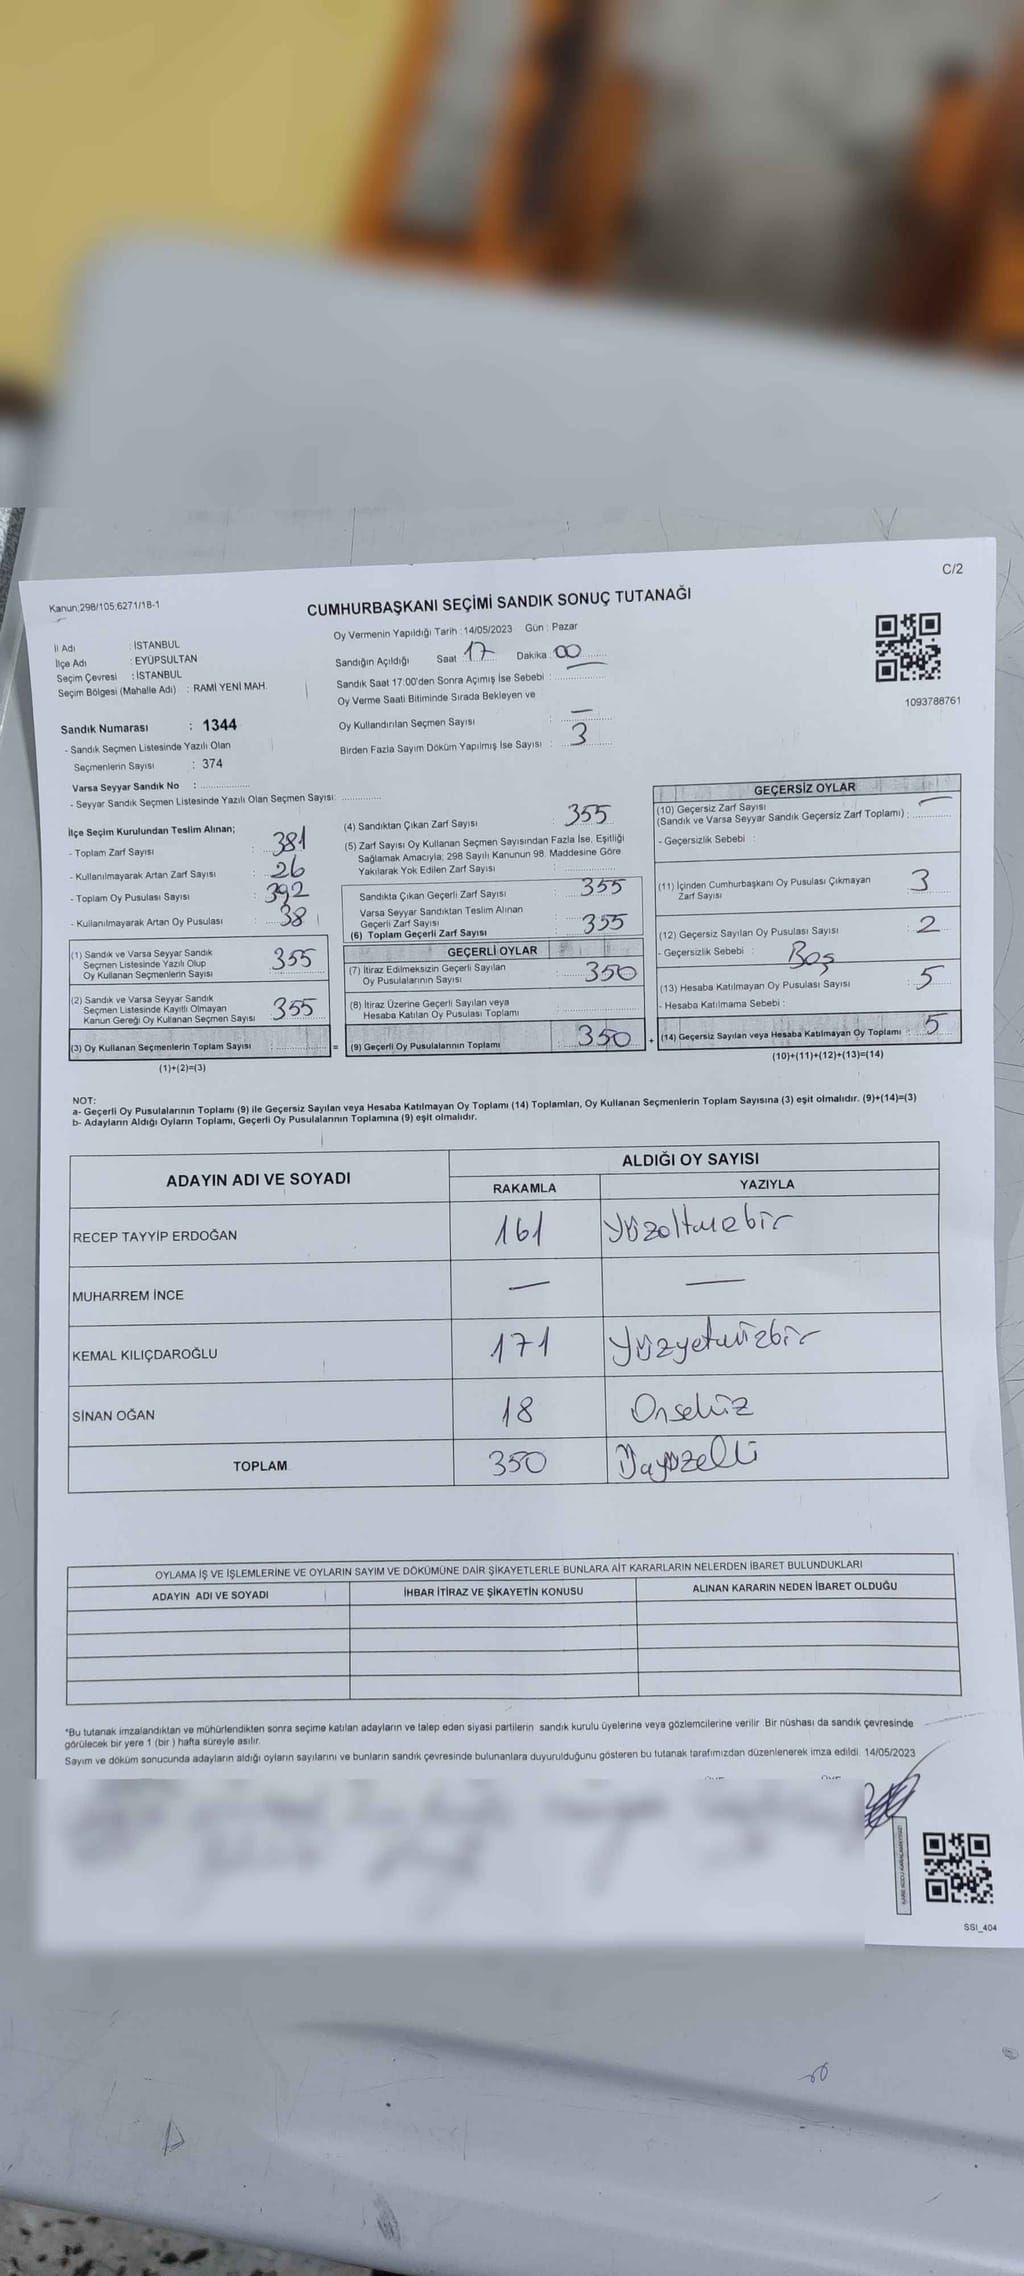 C/2
Kanun;298/105;6271/18-1
CUMHURBAŞKANI SEÇİMİ SANDIK SONUÇ TUTANAĞI
İl Adı : İSTANBUL
İlçe Adı : EYÜPSULTAN
Seçim Çevresi : İSTANBUL
Seçim Bölgesi (Mahalle Adı) : RAMİ YENİ MAH.
Oy Vermenin Yapıldığı Tarih : 14/05/2023 Gün : Pazar
Sandığın Açıldığı Saat 17 Dakika : 00
Sandık Saat 17:00'den Sonra Açımış İse Sebebi :
Oy Verme Saati Bitiminde Sırada Bekleyen ve
Oy Kullandırılan Seçmen Sayısı : —
Birden Fazla Sayım Döküm Yapılmış İse Sayısı : 3
1093788761
Sandık Numarası : 1344
- Sandık Seçmen Listesinde Yazılı Olan
Seçmenlerin Sayısı : 374
Varsa Seyyar Sandık No :
- Seyyar Sandık Seçmen Listesinde Yazılı Olan Seçmen Sayısı:
İlçe Seçim Kurulundan Teslim Alınan;
- Toplam Zarf Sayısı : 381
- Kullanılmayarak Artan Zarf Sayısı : 26
- Toplam Oy Pusulası Sayısı : 392
- Kullanılmayarak Artan Oy Pusulası : 38
(1) Sandık ve Varsa Seyyar Sandık
Seçmen Listesinde Yazılı Olup
Oy Kullanan Seçmenlerin Sayısı 355
(2) Sandık ve Varsa Seyyar Sandık
Seçmen Listesinde Kayıtlı Olmayan
Kanun Gereği Oy Kullanan Seçmen Sayısı 355
(3) Oy Kullanan Seçmenlerin Toplam Sayısı : =
(1)+(2)=(3)
(4) Sandıktan Çıkan Zarf Sayısı : 355
(5) Zarf Sayısı Oy Kullanan Seçmen Sayısından Fazla İse, Eşitliği
Sağlamak Amacıyla; 298 Sayılı Kanunun 98. Maddesine Göre
Yakılarak Yok Edilen Zarf Sayısı :
Sandıkta Çıkan Geçerli Zarf Sayısı : 355
Varsa Seyyar Sandıktan Teslim Alınan
Geçerli Zarf Sayısı
(6) Toplam Geçerli Zarf Sayısı : 355
GEÇERLİ OYLAR
(7) İtiraz Edilmeksizin Geçerli Sayılan
Oy Pusulalarının Sayısı : 350
(8) İtiraz Üzerine Geçerli Sayılan veya
Hesaba Katılan Oy Pusulası Toplamı
(9) Geçerli Oy Pusulalarının Toplamı : 350 +
GEÇERSİZ OYLAR
(10) Geçersiz Zarf Sayısı —
(Sandık ve Varsa Seyyar Sandık Geçersiz Zarf Toplamı) :
- Geçersizlik Sebebi :
(11) İçinden Cumhurbaşkanı Oy Pusulası Çıkmayan
Zarf Sayısı 3
(12) Geçersiz Sayılan Oy Pusulası Sayısı : 2
- Geçersizlik Sebebi : Boş
(13) Hesaba Katılmayan Oy Pusulası Sayısı : 5
- Hesaba Katılmama Sebebi :
(14) Geçersiz Sayılan veya Hesaba Katılmayan Oy Toplamı : 5
(10)+(11)+(12)+(13)=(14)
NOT:
a- Geçerli Oy Pusulalarının Toplamı (9) ile Geçersiz Sayılan veya Hesaba Katılmayan Oy Toplamı (14) Toplamları, Oy Kullanan Seçmenlerin Toplam Sayısına (3) eşit olmalıdır. (9)+(14)=(3)
b- Adayların Aldığı Oyların Toplamı, Geçerli Oy Pusulalarının Toplamına (9) eşit olmalıdır.
ADAYIN ADI VE SOYADI ALDIĞI OY SAYISI
RAKAMLA YAZIYLA
RECEP TAYYİP ERDOĞAN 161 Yüzaltmışbir
MUHARREM İNCE — —
KEMAL KILIÇDAROĞLU 171 Yüzyetmişbir
SİNAN OĞAN 18 Onsekiz
TOPLAM 350 Üçyüzelli
OYLAMA İŞ VE İŞLEMLERİNE VE OYLARIN SAYIM VE DÖKÜMÜNE DAİR ŞİKAYETLERLE BUNLARA AİT KARARLARIN NELERDEN İBARET BULUNDUKLARI
ADAYIN ADI VE SOYADI İHBAR İTİRAZ VE ŞİKAYETİN KONUSU ALINAN KARARIN NEDEN İBARET OLDUĞU
*Bu tutanak imzalandıktan ve mühürlendikten sonra seçime katılan adayların ve talep eden siyasi partilerin sandık kurulu üyelerine veya gözlemcilerine verilir. Bir nüshası da sandık çevresinde
görülecek bir yere 1 (bir) hafta süreyle asılır.
Sayım ve döküm sonucunda adayların aldığı oyların sayılarını ve bunların sandık çevresinde bulunanlara duyurulduğunu gösteren bu tutanak tarafımızdan düzenlenerek imza edildi. 14/05/2023
SSI_404